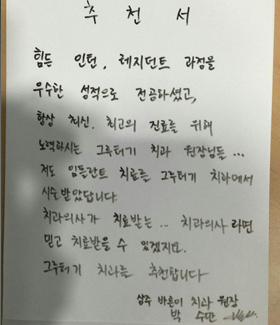 추 천 서
힘든 인턴, 레지던트 과정을
우수한 성적으로 전공하셨고,
항상 최신, 최고의 진료를 위해
노력하시는 그루터기 치과 원장님들 ...
저도 임플란트 치료를 그루터기 치과에서
시술 받았답니다
치과의사가 치료받는 ... 치과의사 라면
믿고 치료받을 수 있겠지요.
그루터기 치과를 추천합니다
상주 바른이 치과 원장
박 수만